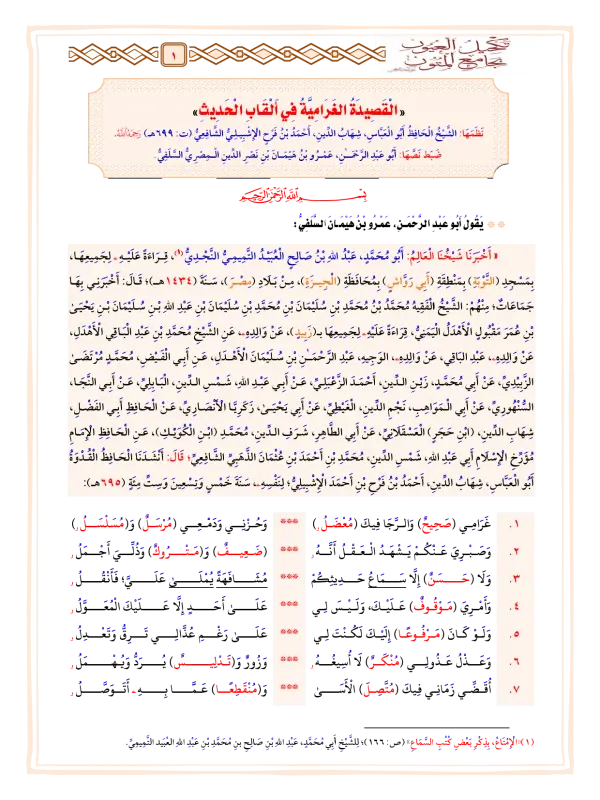 تكحيل العيون
بجامع المتون
١
«الْقَصِيدَةُ الغَرَامِيَّةُ فِي أَلْقَابِ الْحَدِيثِ»
نَظَمَهَا: الشَّيْخُ الْحَافِظُ أَبُو الْعَبَّاسِ، شِهَابُ الدِّينِ، أَحْمَدُ بْنُ فَرَحٍ الإِشْبِيلِيُّ الشَّافِعِيُّ (ت: ٦٩٩هـ) رَحِمَهُ اللهُ.
ضَبَطَ نَصَّهَا: أَبُو عَبْدِ الرَّحْمَـٰنِ، عَمْرُو بْنُ هَيْمَانَ بْنِ نَصْرِ الدِّينِ الْـمِصْرِيُّ السَّلَفِيُّ.
بِسْمِ اللهِ الرَّحْمَنِ الرَّحِيمِ
** يَقُولُ أَبُو عَبْدِ الرَّحْمَـنِ، عَمْرُو بْنُ هَيْمَانَ السَّلَفِيُّ:
« أَخْبَرَنَا شَيْخُنَا الْعَالِمُ: أَبُو مُحَمَّدٍ، عَبْدُ اللهِ بْنُ صَالِحٍ الْعُبَيْدُ التَّمِيمِيُّ النَّجْدِيُّ (١)، قِرَاءَةً عَلَيْهِ لِجَمِيعِهَا،
بِمَسْجِدِ (التَّوْبَةِ) بِمَنْطِقَةِ (أَبِي رَوَّاشٍ) بِمُحَافَظَةِ (الْجِيزَةِ)، مِنْ بَلَادِ (مِصْرَ)، سَنَةَ (١٤٣٤هـ)؛ قَالَ: أَخْبَرَنِي بِهَا
جَمَاعَاتٌ؛ مِنْهُمْ: الشَّيْخُ الْفَقِيهُ مُحَمَّدُ بْنُ مُحَمَّدِ بْنِ سُلَيْمَانَ بْنِ مُحَمَّدِ بْنِ سُلَيْمَانَ بْنِ عَبْدِ اللهِ بْنِ سُلَيْمَانَ بْنِ يَحْيَىٰ
بْنِ عُمَرَ مَقْبُولٍ الْأَهْدَلُ الْيَمَنِيُّ، قِرَاءَةً عَلَيْهِ لِجَمِيعِهَا بـ(زَبِيدٍ)، عَنْ وَالِدِهِ، عَنِ الشَّيْخِ مُحَمَّدِ بْنِ عَبْدِ الْبَاقِي الْأَهْدَلِ،
عَنْ وَالِدِهِ، عَبْدِ الْبَاقِي، عَنْ وَالِدِهِ، الْوَجِيهِ، عَبْدِ الرَّحْمَـٰنِ بْنِ سُلَيْمَانَ الْأَهْدَلِ، عَنْ أَبِي الْفَيْضِ، مُحَمَّدٍ مُرْتَضَىٰ
الزَّبِيدِيِّ، عَنْ أَبِي مُحَمَّدٍ، زَيْنِ الدِّينِ، أَحْمَدَ الزَّعْبَلِيِّ، عَنْ أَبِي عَبْدِ اللهِ، شَمْسِ الدِّينِ، الْبَابِلِيِّ، عَنْ أَبِي النَّجَا،
السَّنْهُورِيِّ، عَنْ أَبِي الْـمَوَاهِبِ، نَجْمِ الدِّينِ، الْغَيْطِيِّ، عَنْ أَبِي يَحْيَىٰ، زَكَرِيَّا الْأَنْصَارِيِّ، عَنْ الْحَافِظِ أَبِي الْفَضْلِ،
شِهَابِ الدِّينِ، (ابْنِ حَجَرٍ) الْعَسْقَلَانِيِّ، عَنْ أَبِي الطَّاهِرِ، شَرَفِ الدِّينِ، مُحَمَّدِ (ابْنِ الْكُوَيْكِ)، عَنِ الْحَافِظِ الْإِمَامِ
مُؤَرِّخِ الْإِسْلَامِ أَبِي عَبْدِ اللهِ، شَمْسِ الدِّينِ، مُحَمَّدِ بْنِ أَحْمَدَ بْنِ عُثْمَانَ الذَّهَبِيِّ الشَّافِعِيِّ؛ قَالَ: أَنْشَدَنَا الْحَافِظُ الْقُدْوَةُ
أَبُو الْعَبَّاسِ، شِهَابُ الدِّينِ، أَحْمَدُ بْنُ فَرْحِ بْنِ أَحْمَدَ الْإِشْبِيلِيُّ؛ لِنَفْسِهِ، سَنَةَ خَمْسٍ وَتِسْعِينَ وَسِتِّ مِئَةٍ (٦٩٥هـ):
١. غَرَامِي (صَحِيحٌ) وَالـرَّجَا فِيكَ (مُعْضَلُ) *** وَحُـزْنِـي وَدَمْـعِـي (مُرْسَلٌ) وَ(مُسَلْسَـلُ)
٢. وَصَبْـرِيَ عَنْـكُمْ يَشْهَـدُ الْـعَـقْـلُ أَنَّـهُ *** (ضَـعِـيـفٌ) وَ(مَـتْــرُوكٌ) وَذُلِّـيَ أَجْـمَـلُ
٣. وَلَا (حَـــسَـنٌ) إِلَّا سَـــمَـاعُ حَـدِيثِكُمْ *** مُـشَــافَهَـةً يُـمْـلَـــىٰ عَلَـــيَّ؛ فَأَنْـقُـــلُ
٤. وَأَمْـرِيَ (مَـوْقُـوفٌ) عَـلَـيْـكَ، وَلَـيْـسَ لِي *** عَـلَـــىٰ أَحَـــدٍ إِلَّا عَـــلَـيْـكَ الْـمُـعَـــوَّلُ
٥. وَلَـوْ كَـانَ (مَـرْفُـوعًـا) إِلَيْكَ لَـكُنْتَ لِي *** عَلَـــىٰ رَغْـــمِ عُذَّالِـــي تَـــرِقُّ وَتَعْـدِلُ
٦. وَعَـذْلُ عَـذُولِـي (مُنْكَـرٌ) لَا أُسِيغُـهُ *** وَزُورٌ وَ(تَـدْلِيــــسٌ) يُـــرَدُّ وَيُـهْـمَـــلُ
٧. أُقَـضِّـي زَمَـانِـي فِيكَ (مُتَّصِلَ) الْأَسَـىٰ *** وَ(مُنْقَطِعًـا) عَـمَّـــا بِـــهِ أَتَـوَصَّـــلُ
(١) «الْإِمْتَاعُ، بِذِكْرِ بَعْضِ كُتُبِ السَّمَاعِ» (ص: ١٦٦)؛ لِلشَّيْخِ أَبِي مُحَمَّدٍ، عَبْدِ اللهِ بْنِ صَالِحِ بنِ مُحَمَّدِ بْنِ عَبْدِ اللهِ العُبَيد التَّمِيمِيِّ.